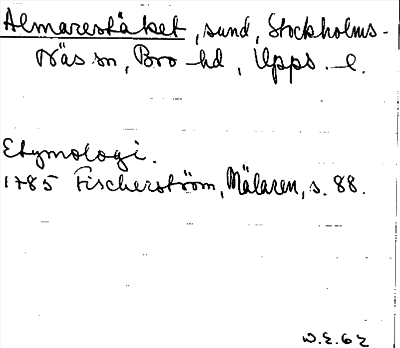 Almarestäket, sund, Stockholms-
Näs sn, Bro hd, Upps. l.
Etymologi.
1785 Fischerström, Mälaren, s. 88.
W.E. 62